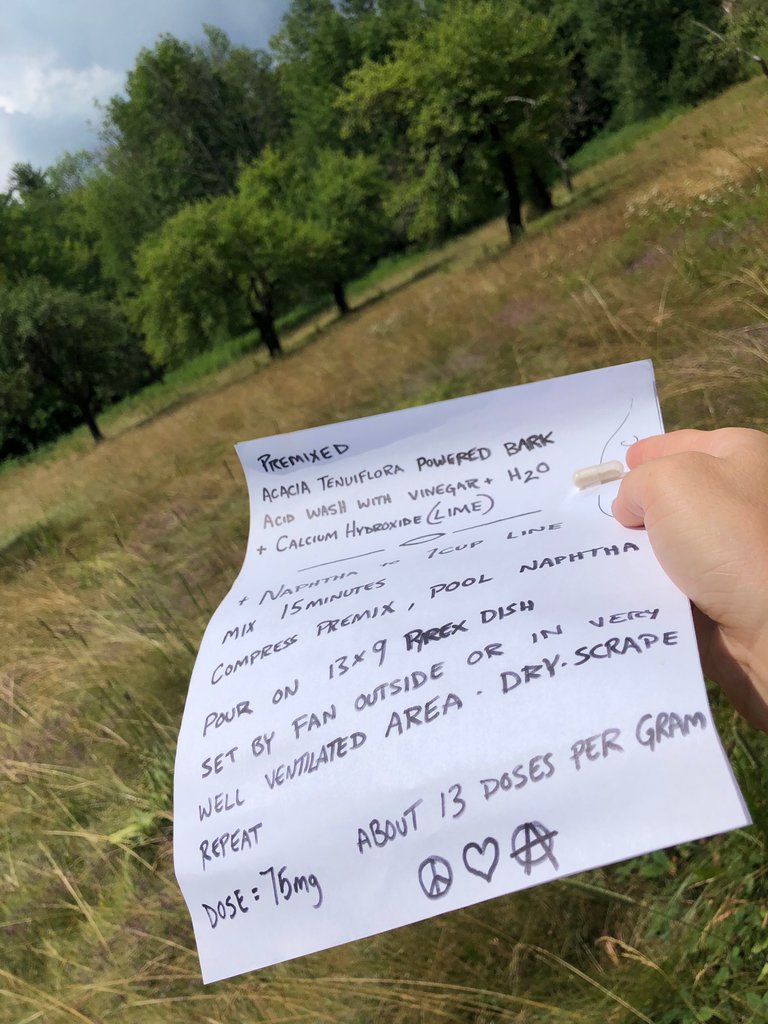 PREMIXED
ACACIA TENUIFLORA POWERED BARK
ACID WASH WITH VINEGAR + H2O
+ CALCIUM HYDROXIDE (LIME)
+ NAPHTHA TO 7CUP LINE
MIX 15 MINUTES
COMPRESS PREMIX, POOL NAPHTHA
POUR ON 13X9 PYREX DISH
SET BY FAN OUTSIDE OR IN VERY
WELL VENTILATED AREA. DRY. SCRAPE
REPEAT
DOSE = 75mg ABOUT 13 DOSES PER GRAM